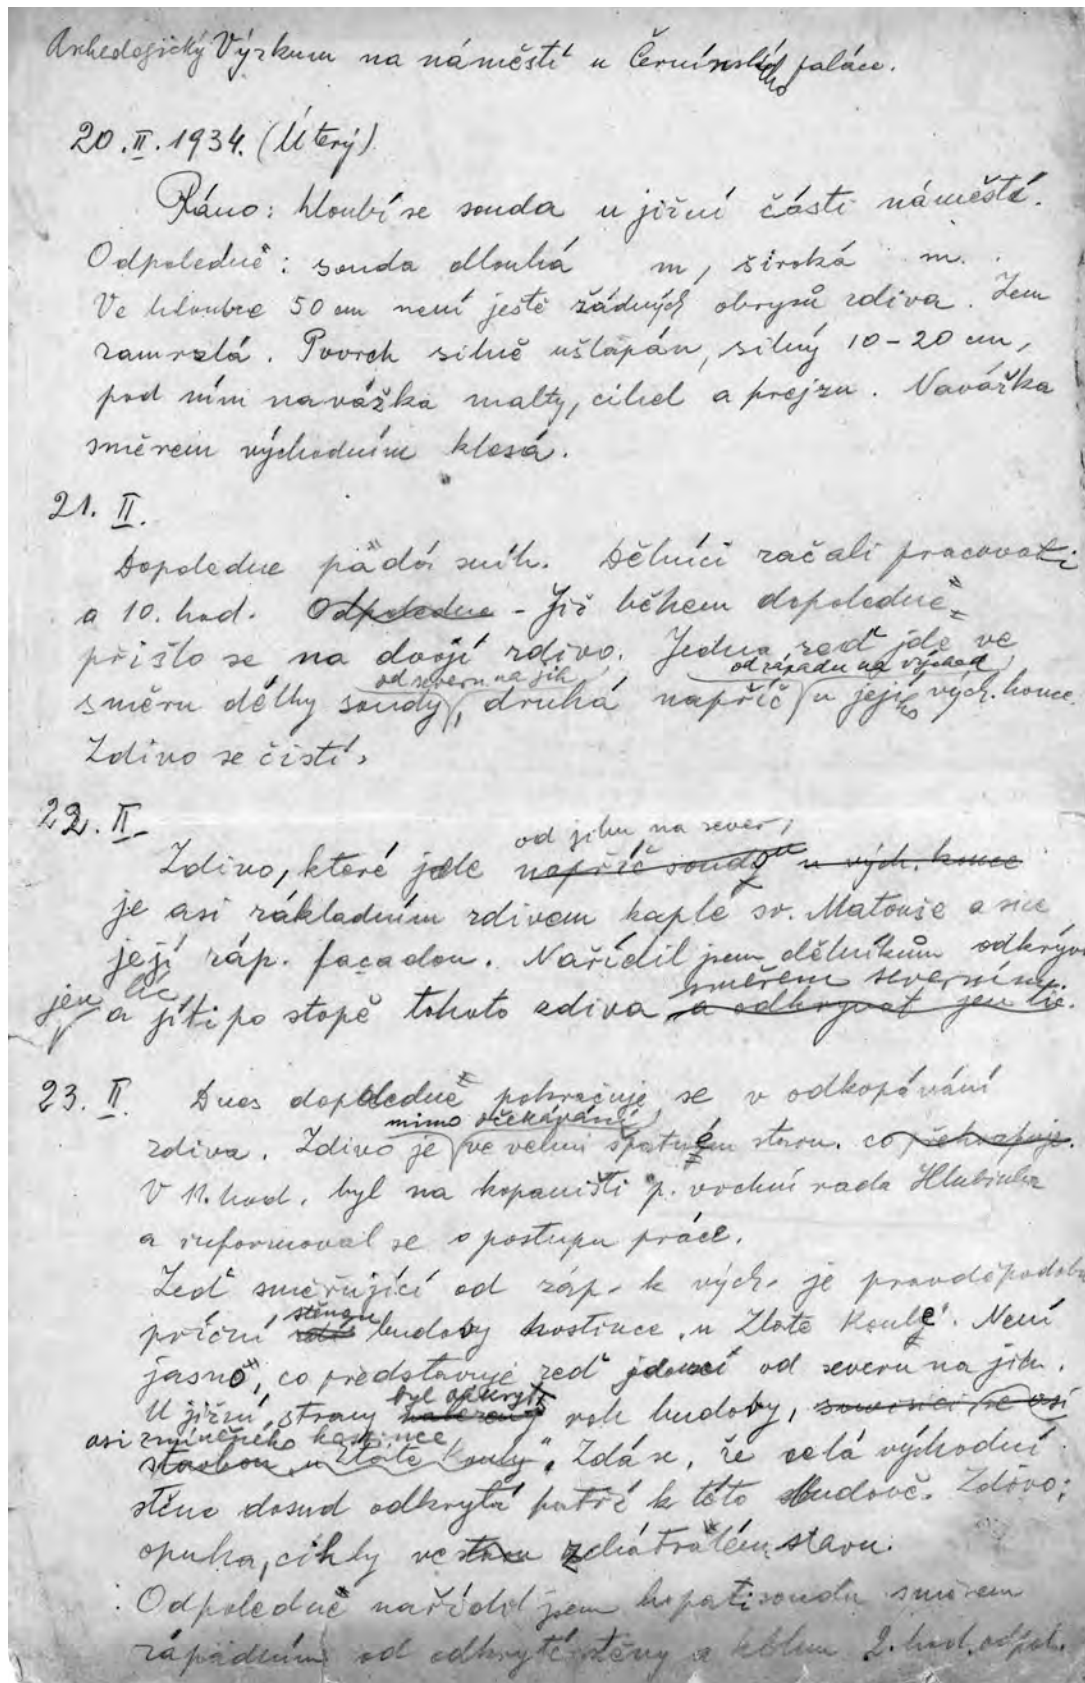 Archeologický Výzkum na náměstí u Černínského paláce.
20.II.1934. (Úterý)
Ráno: hloubí se sonda u jižní části náměstí.
Odpoledně: sonda dlouhá m, široká m.
Ve hloubce 50 cm není ještě žádných obrysů zdiva. Zem
zamrzlá. Povrch silně ušlapán, silný 10-20 cm,
pod ním navážka malty, cihel a prejzu. Navážka
směrem východním klesá.
21. II.
Dopoledne padá sníh. Dělníci začali pracovati
a 10. hod. Odpoledne - Již během dopoledně
přišlo se na dvojí zdivo. Jedna zeď jde ve
od severu na jih od západu na východ
směru délky sondy, druhá napříč u jejího vých. konce.
Zdivo se čistí.
22. II.
od jihu na sever,
Zdivo, které jde napříč sondou u vých. konce
je asi základním zdivem kaple sv. Matouše a sice
její záp. façadou. Nařídil jsem dělníkům
směrem severním.
jen líc a jíti po stopě tohoto zdiva a odkrývat jen líc.
23. II. Dnes dopoledně pokračuje se v odkopávání
mimo očekávání
zdiva. Zdivo je ve velmi špatném stavu. co
V 11. hod. byl na kopaništi p. vrchní rada Hlubinka
a informoval se o postupu práce.
Zeď směřující od záp. k vých. je
stěnou
příční zdí budovy hostince „u Zlaté Koule". Není
jasno, co představuje zeď jdoucí od severu na jih.
byl odkryt
U jižní strany nalezený roh budovy, souvisící se asi
asi zmíněného hostince
stavbou u Zlaté Koule". Zdá se, že celá východní
stěna dosud odkrytá patří k této budově. Zdivo:
opuka, cihly ve stavu zchátralém stavu.
Odpoledně nařídil jsem kopati sondu směrem
západním od odkryté stěny a kolem 2. hod. odpol.